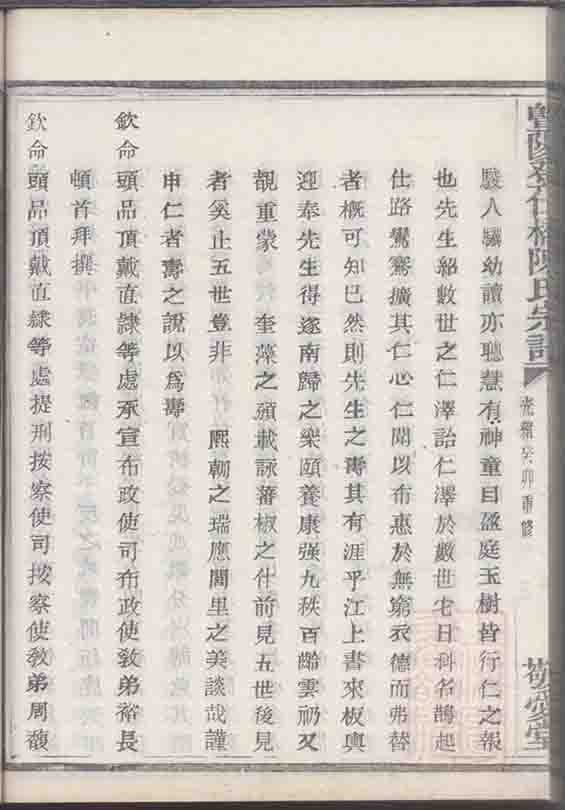 暨陽 陳氏宗譜
光緒癸卯重修
敬愛堂
駿人驥幼讀亦聰慧有神童目盈庭玉樹皆行仁之報
也先生紹數世之仁澤詒仁澤於數世它日科名鵲起
仕路鸞騫擴其仁心仁聞以布惠於無窮衣德而弗替
者概可知已然則先生之壽其有涯乎江上書來板輿
迎奉先生得遂南歸之樂頤養康强九秩百齡雲礽又
覩重蒙 奎藻之頒載詠蕃椒之什前見五世後見
者奚止五世豈非 熙朝之瑞應閭里之美談哉謹
申仁者壽之說以爲壽
欽命頭品頂戴直隸等處承宣布政使司布政使敎弟裕長
頓首拜撰
欽命頭品頂戴直隸等處提刑按察使司按察使敎弟周馥